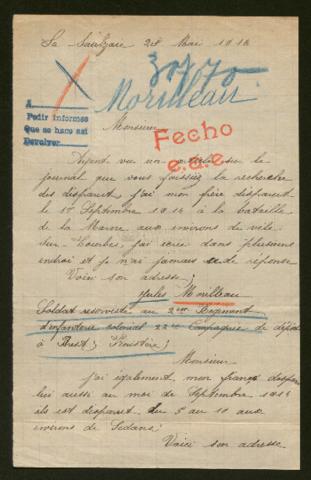 La Sauzaie 28 Mai 1916
307070
Morilleau
A
Pedir informes
Que se hace asi
Devolver
Monsieur
Fecho
e.a.e.
Ayant vu un article sur le
journal que vous faissiez la recherche
des disparut j'ai mon frère disparut
le 1er Septembre 1914 à la bataille
de la Marne aux environs de
sur Tourbes, j'ai écrie dans plusieurs
endroi et je n'ai jamais de réponse
Voici son adresse;
Jules Morilleau
Soldat reserviste au 2eme Regiment
d'infanterie colonial 22e Compagnie de dépot
à Brest; Finistère;
Monsieur
j'ai également mon français dispar
lui aussi au moi de Septembre 1914
ils est disparut du 5 au 10 aux
environs de Sedans;
Voici son adresse